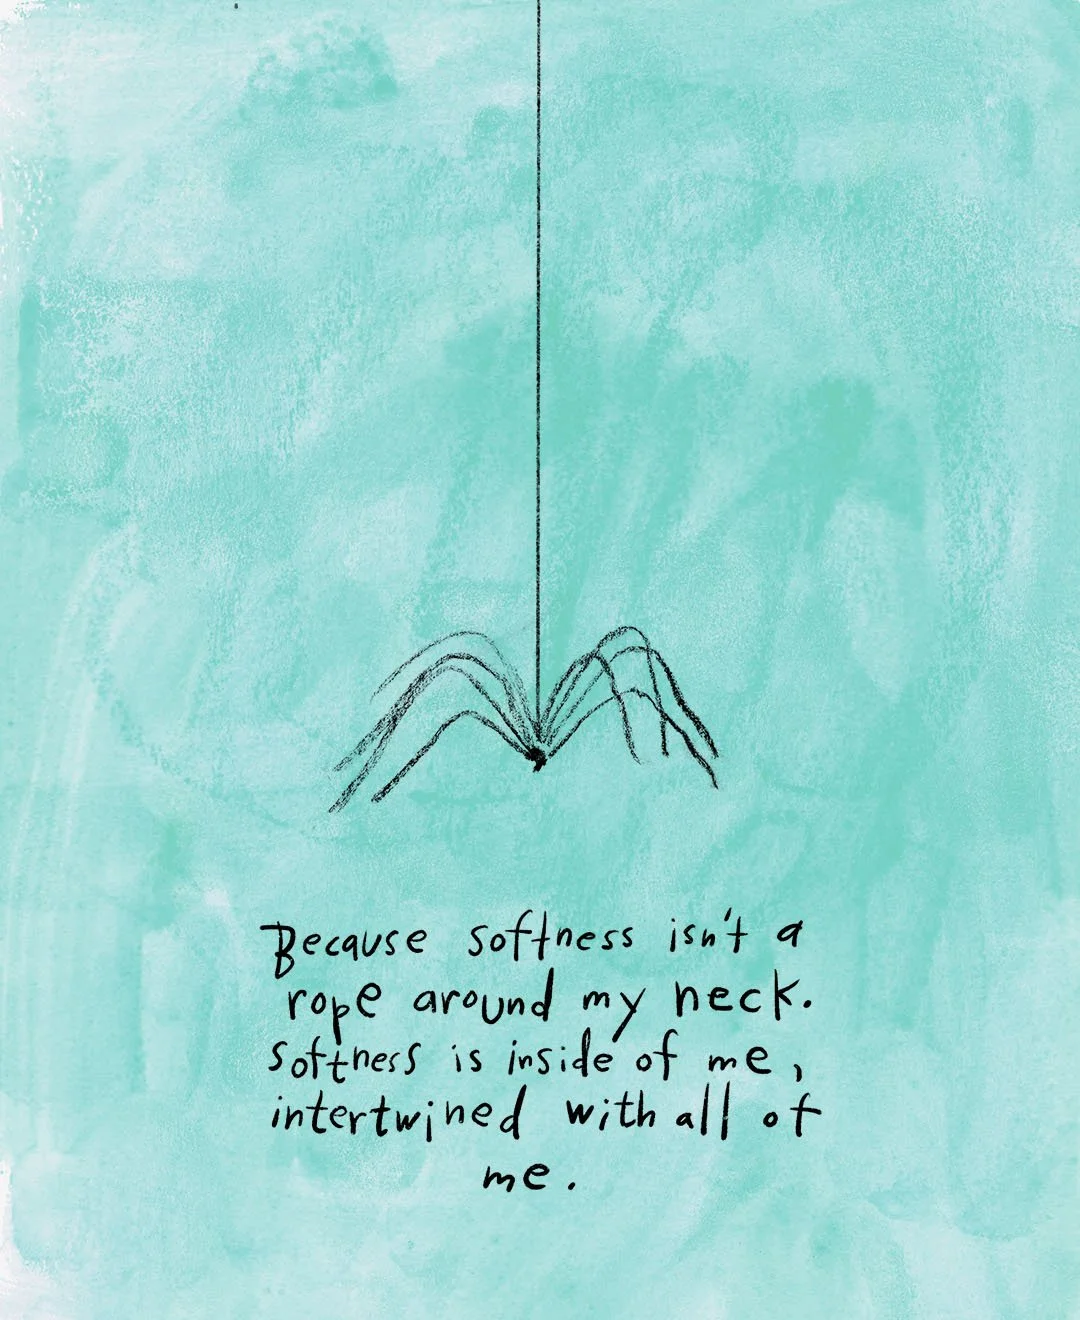 Because softness isn't a
rope around my neck.
Softness is inside of me,
intertwined with all of
me.